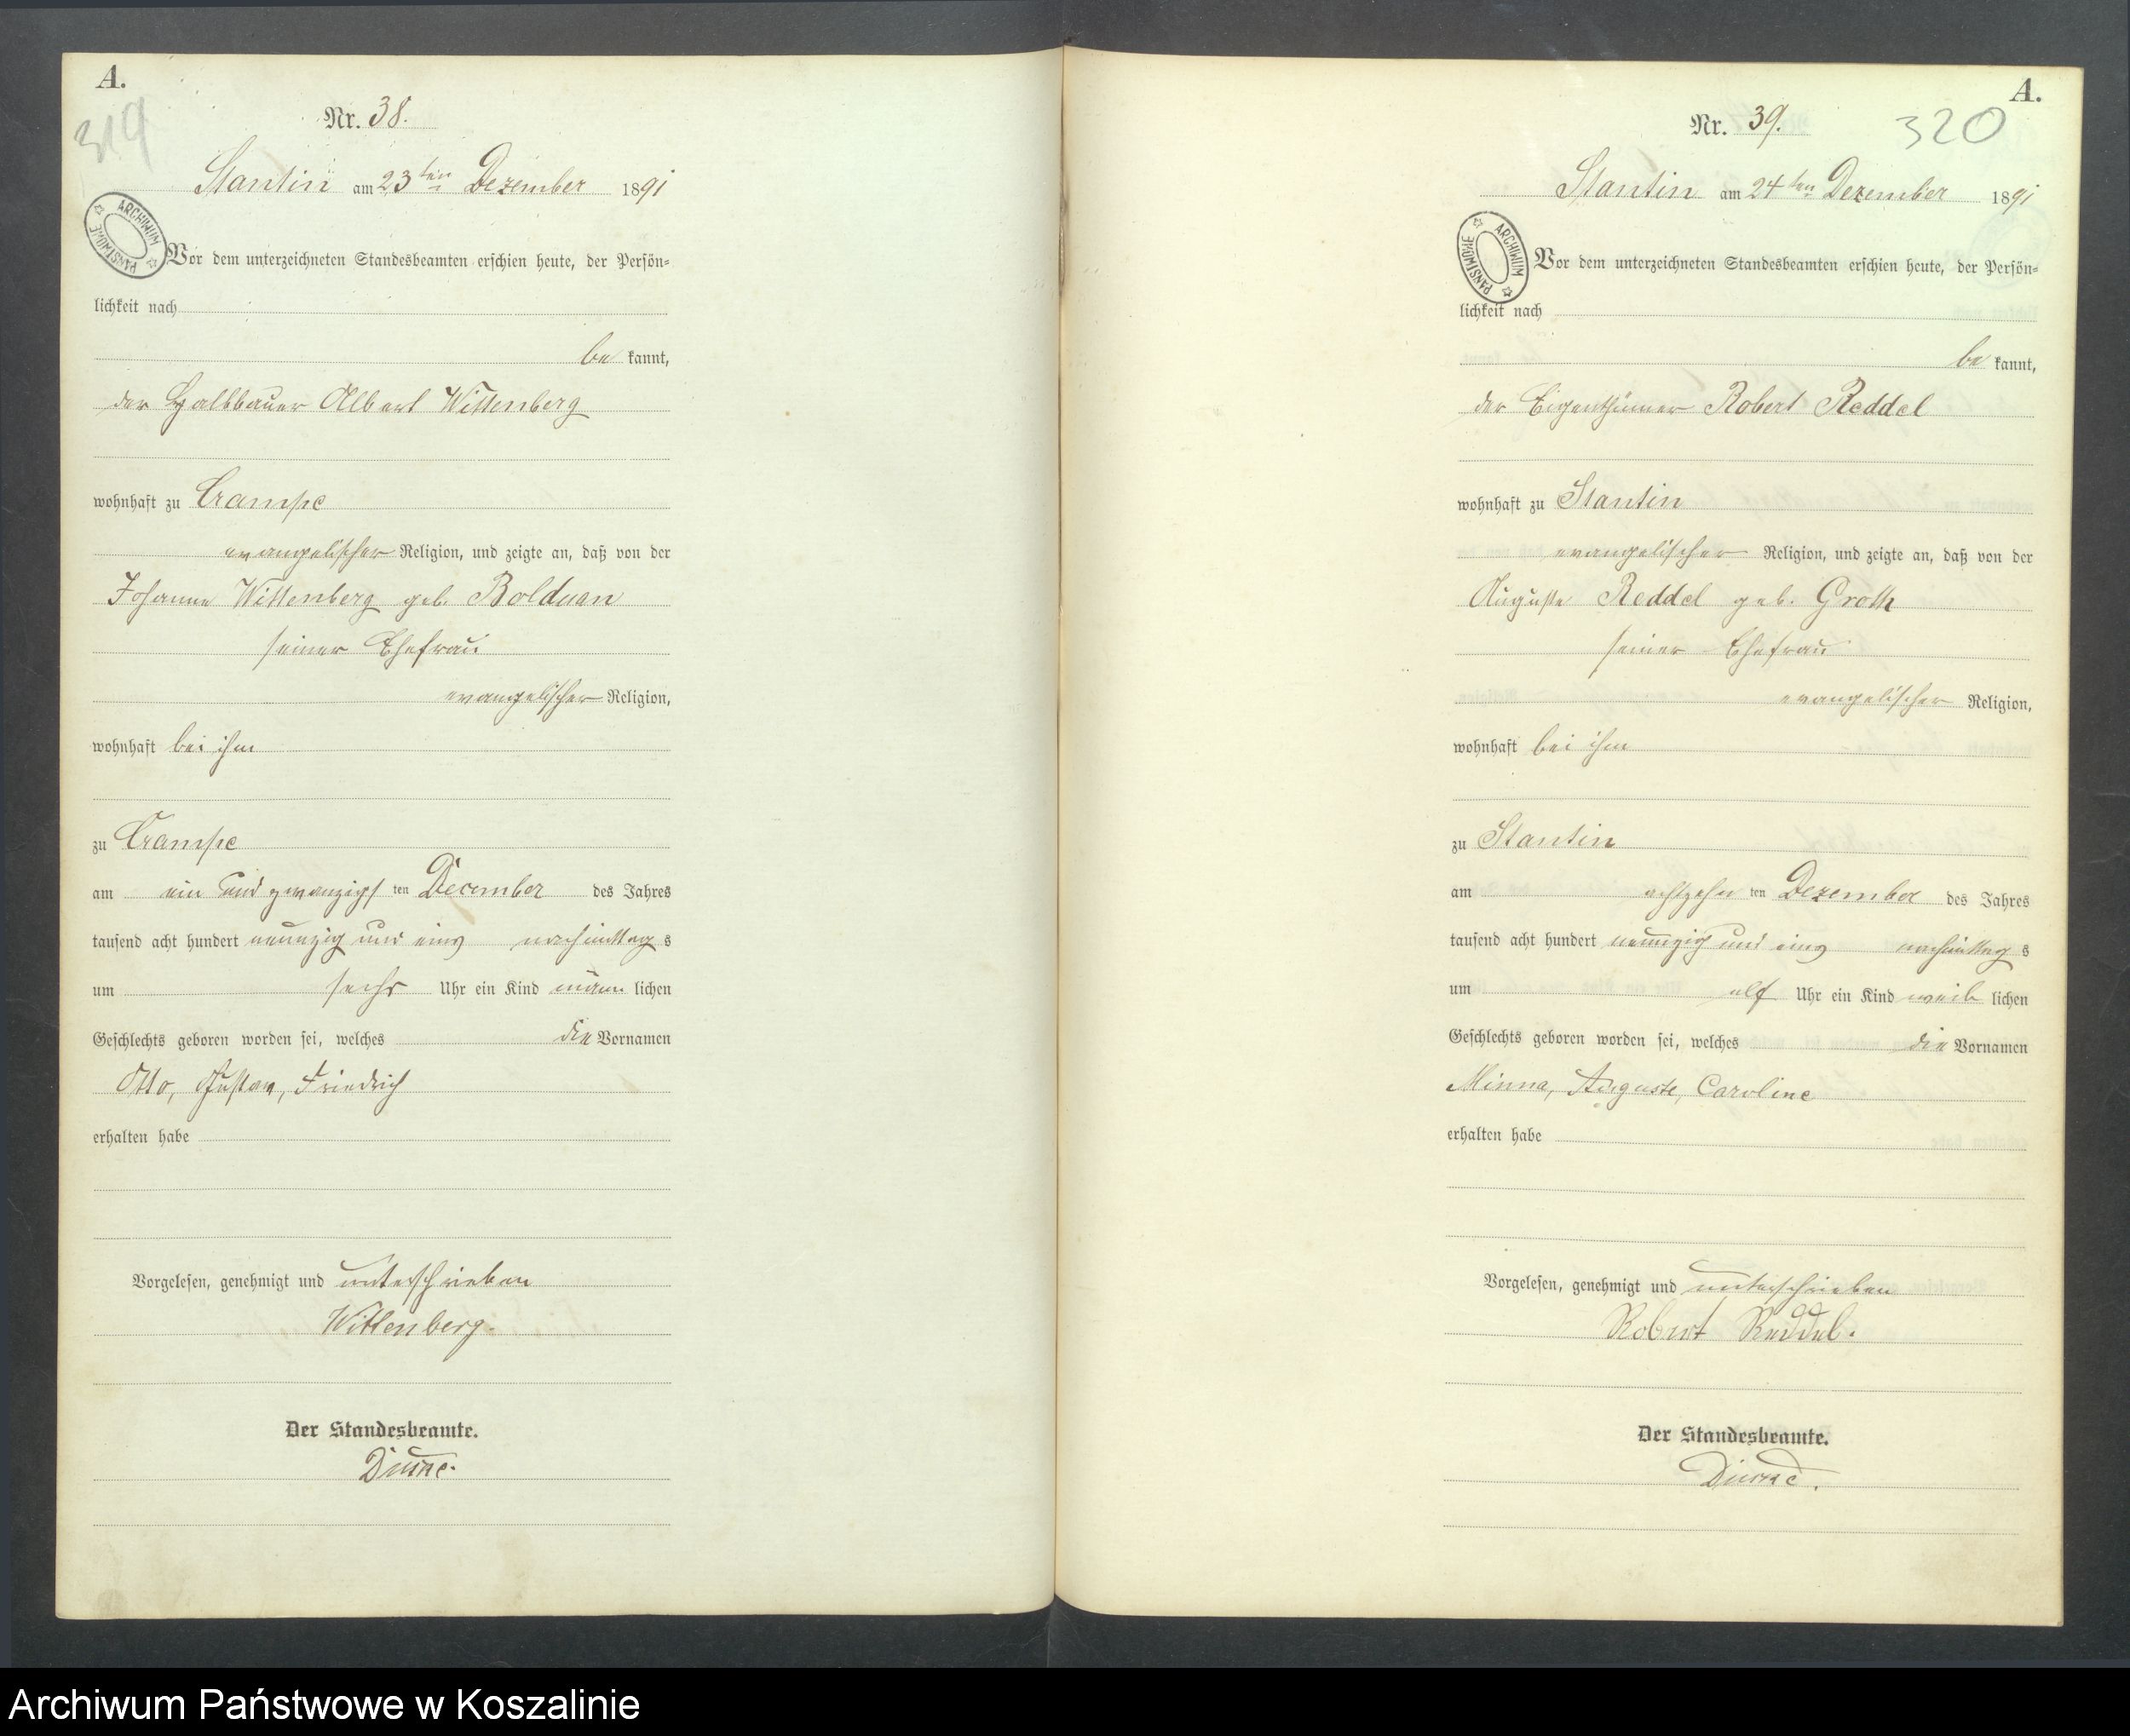 A.
319
Nr. 38.
Stantin am 23ten Dezember 1891
ARCHIWUM PAŃSTWOWE
Vor dem unterzeichneten Standesbeamten erschien heute, der Persön=
lichkeit nach
be kannt,
der Halbbauer Albert Wittenberg
wohnhaft zu Crampe
evangelischer Religion, und zeigte an, daß von der
Johanne Wittenberg geb. Bolduan
seiner Ehefrau
evangelischer Religion,
wohnhaft bei ihm
zu Crampe
am ein und zwanzigs ten December des Jahres
tausend acht hundert neunzig und eins nachmittag s
um sechs Uhr ein Kind männ lichen
Geschlechts geboren worden sei, welches die Vornamen
Otto, Gustav, Friedrich
erhalten habe
Vorgelesen, genehmigt und unterschrieben
Wittenberg.
Der Standesbeamte.
A.
320
Nr. 39.
Stantin am 24ten Dezember 1891
ARCHIWUM PAŃSTWOWE
Vor dem unterzeichneten Standesbeamten erschien heute, der Persön=
lichkeit nach
be kannt,
der Eigenthümer Robert Reddel
wohnhaft zu Stantin
evangelischer Religion, und zeigte an, daß von der
Auguste Reddel geb. Groth
seiner Ehefrau
evangelischer Religion,
wohnhaft bei ihm
zu Stantin
am achtzehn ten Dezember des Jahres
tausend acht hundert neunzig und eins nachmittag s
um elf Uhr ein Kind weib lichen
Geschlechts geboren worden sei, welches die Vornamen
Minna, Auguste, Caroline
erhalten habe
Vorgelesen, genehmigt und unterschrieben
Robert Reddel.
Der Standesbeamte.
Archiwum Państwowe w Koszalinie